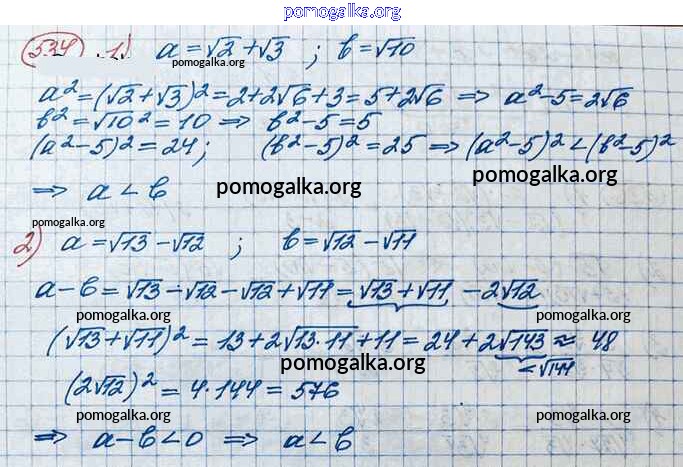 pomogalka.org
534. 1) a = √2 + √3 ; b = √10
pomogalka.org
a² = (√2 + √3)² = 2 + 2√6 + 3 = 5 + 2√6 ⇒ a² - 5 = 2√6
b² = √10² = 10 ⇒ b² - 5 = 5
(a² - 5)² = 24; (b² - 5)² = 25 ⇒ (a² - 5)² < (b² - 5)²
⇒ a < b pomogalka.org pomogalka.org
pomogalka.org
2) a = √13 - √12 ; b = √12 - √11
a - b = √13 - √12 - √12 + √11 = √13 + √11 - 2√12
pomogalka.org pomogalka.org
(√13 + √11)² = 13 + 2√13·11 + 11 = 24 + 2√143 ≈ 48
pomogalka.org < √144
(2√12)² = 4·144 = 576
pomogalka.org pomogalka.org
⇒ a - b < 0 ⇒ a < b